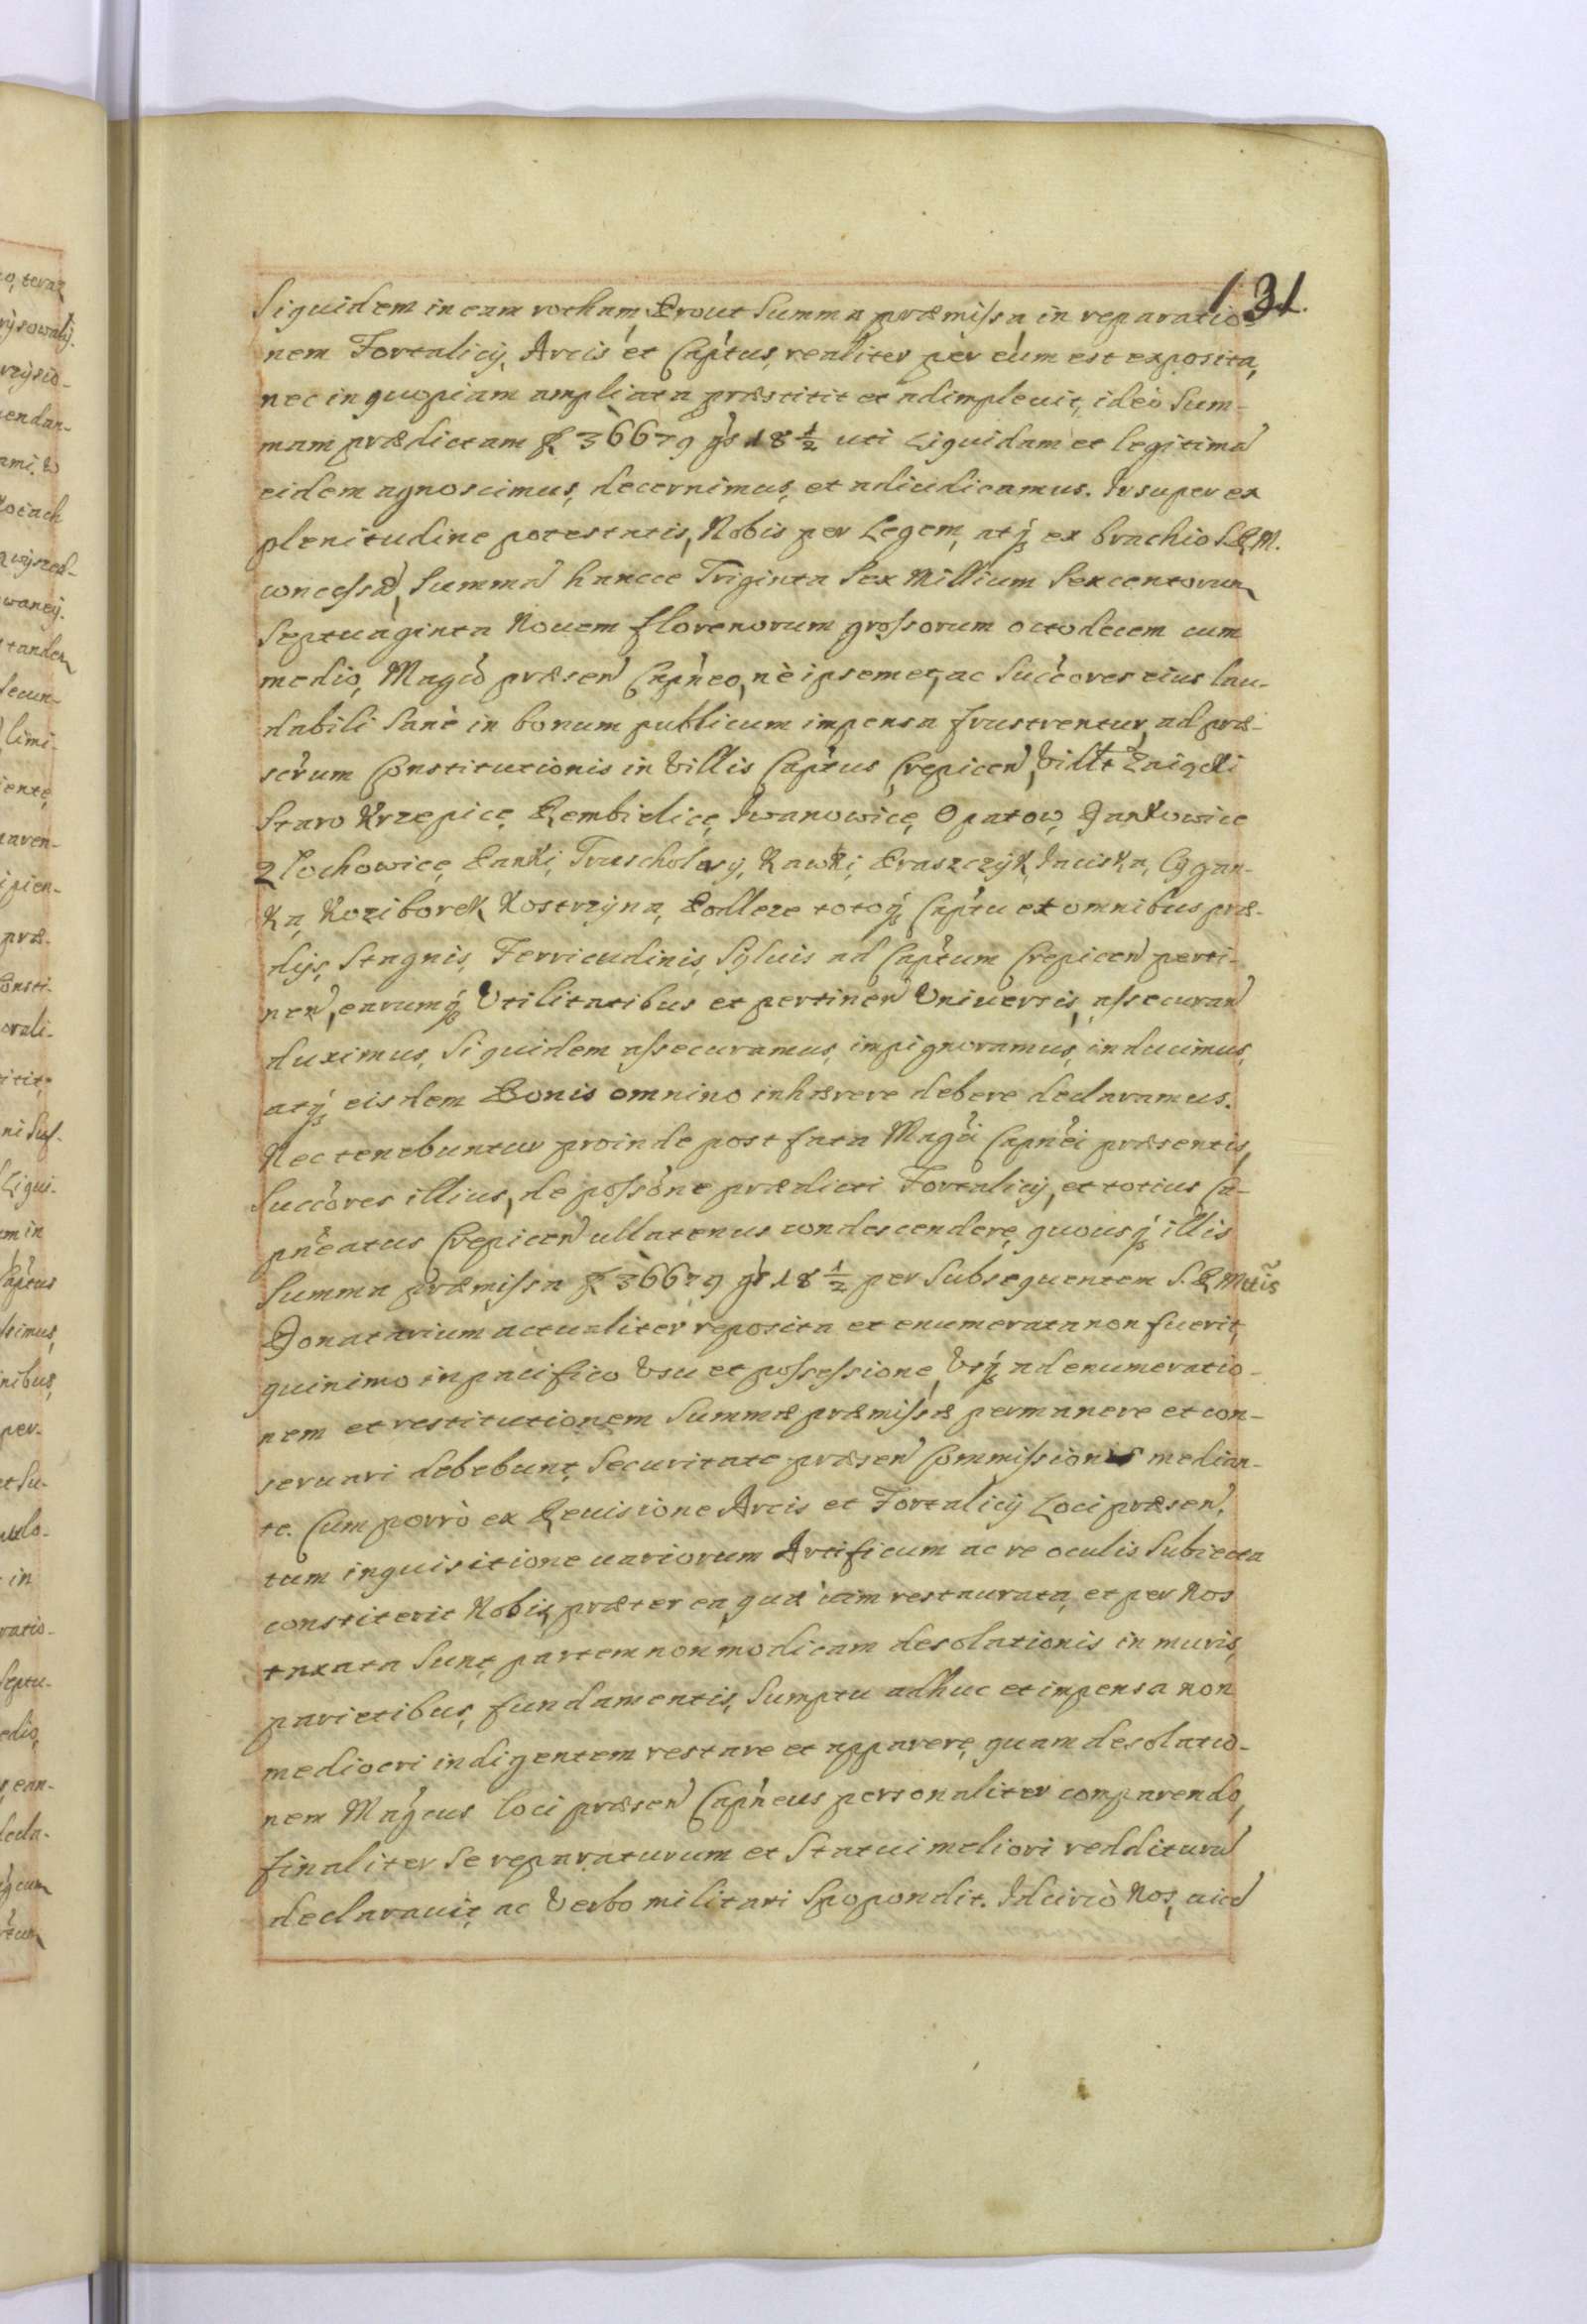 131.
Siquidem in eam rotham, Prout Summa præmissa, in reparatio-
nem Fortalicij, Arcis et Cap̃tus, realiter per eum est exposita,
nec in quopiam ampliata præstitit et adimpleuit, ideo Sum-
mam prædictam fl 36679 gr̃s 18 1/2 uti Liquidam et legitimã
eidem agnoscimus, decernimus, et adiudicamus. Insuper ex
plenitudine potestatis, Nobis per Legem, atq̃ ex brachio S.R.M.
concessæ, Summã hancce Triginta Sex Millium Sexcentorum
Septuaginta Nouem florenorum grossorum octodecem cum
medio, Magc̃o præseñ Cap̃neo, nè ipsemet, ac Succ̃ores eius lau-
dabili Sanè in bonum publicum impensa frustrentur, ad præ-
scr̃um Constitutionis in Villis Cap̃tus Crepiceñ, Villt Zaigdli
Staro Krzepice, Rembielice, Iwanowice, Opatow, Dankowice
Zlochowice, Panki, Truscholasy, Kawki, Praszczyk, Iaciska, Cygan-
ka, Koziborek, Kostrzyna, Podleze totoq̃ Cap̃tu et omnibus præ-
dijs, Stagnis, Ferricudinis, Syluis ad Cap̃tum Crepiceñ perti-
neñ, earumq̃ Vtilitatibus et pertineñ Vniuersis, assecurañ
duximus, Siquidem assecuramus, impignoramus, inducimus,
atq̃ eisdem Bonis omnino inhærere debere declaramus.
Nec tenebuntur proinde post fata Magc̃i Cap̃nei præsentis,
Succ̃ores illius, de possõne prædicti Fortalicij, et totius Ca-
pñeatus Crepiceñ ullatenus condescendere, quousq̃ illis
Summa præmissa fl 36679 gr̃s 18 1/2 per Subsequentem S.R.Mttis
Donatarium actualiter reposita et enumerata non fuerit,
quinimo in pacifico Vsu et possessione, Vsq̃ ad enumeratio-
nem et restitutionem Summæ præmissæ permanere et con-
seruari debebunt, Securitate præseñ Commissionis median-
te. Cum porrò ex Reuisione Arcis et Fortalicij Loci præseñ,
tum inquisitione uariorum Artificum ac re oculis Subiecta
constiterit Nobis, præter ea, quæ iam restaurata, et per Nos
taxata Sunt, partem non modicam desolationis in muris,
parietibus, fundamentis, Sumptu adhuc et impensa non
mediocri indigentem restare et apparere, quam desolatio-
nem Mag̃cus loci præseñ Cap̃neus personaliter comparendo,
finaliter Se reparaturum et Statui meliori redditurũ
declarauit, ac Verbo militari Spopondit. Idcircò Nos,